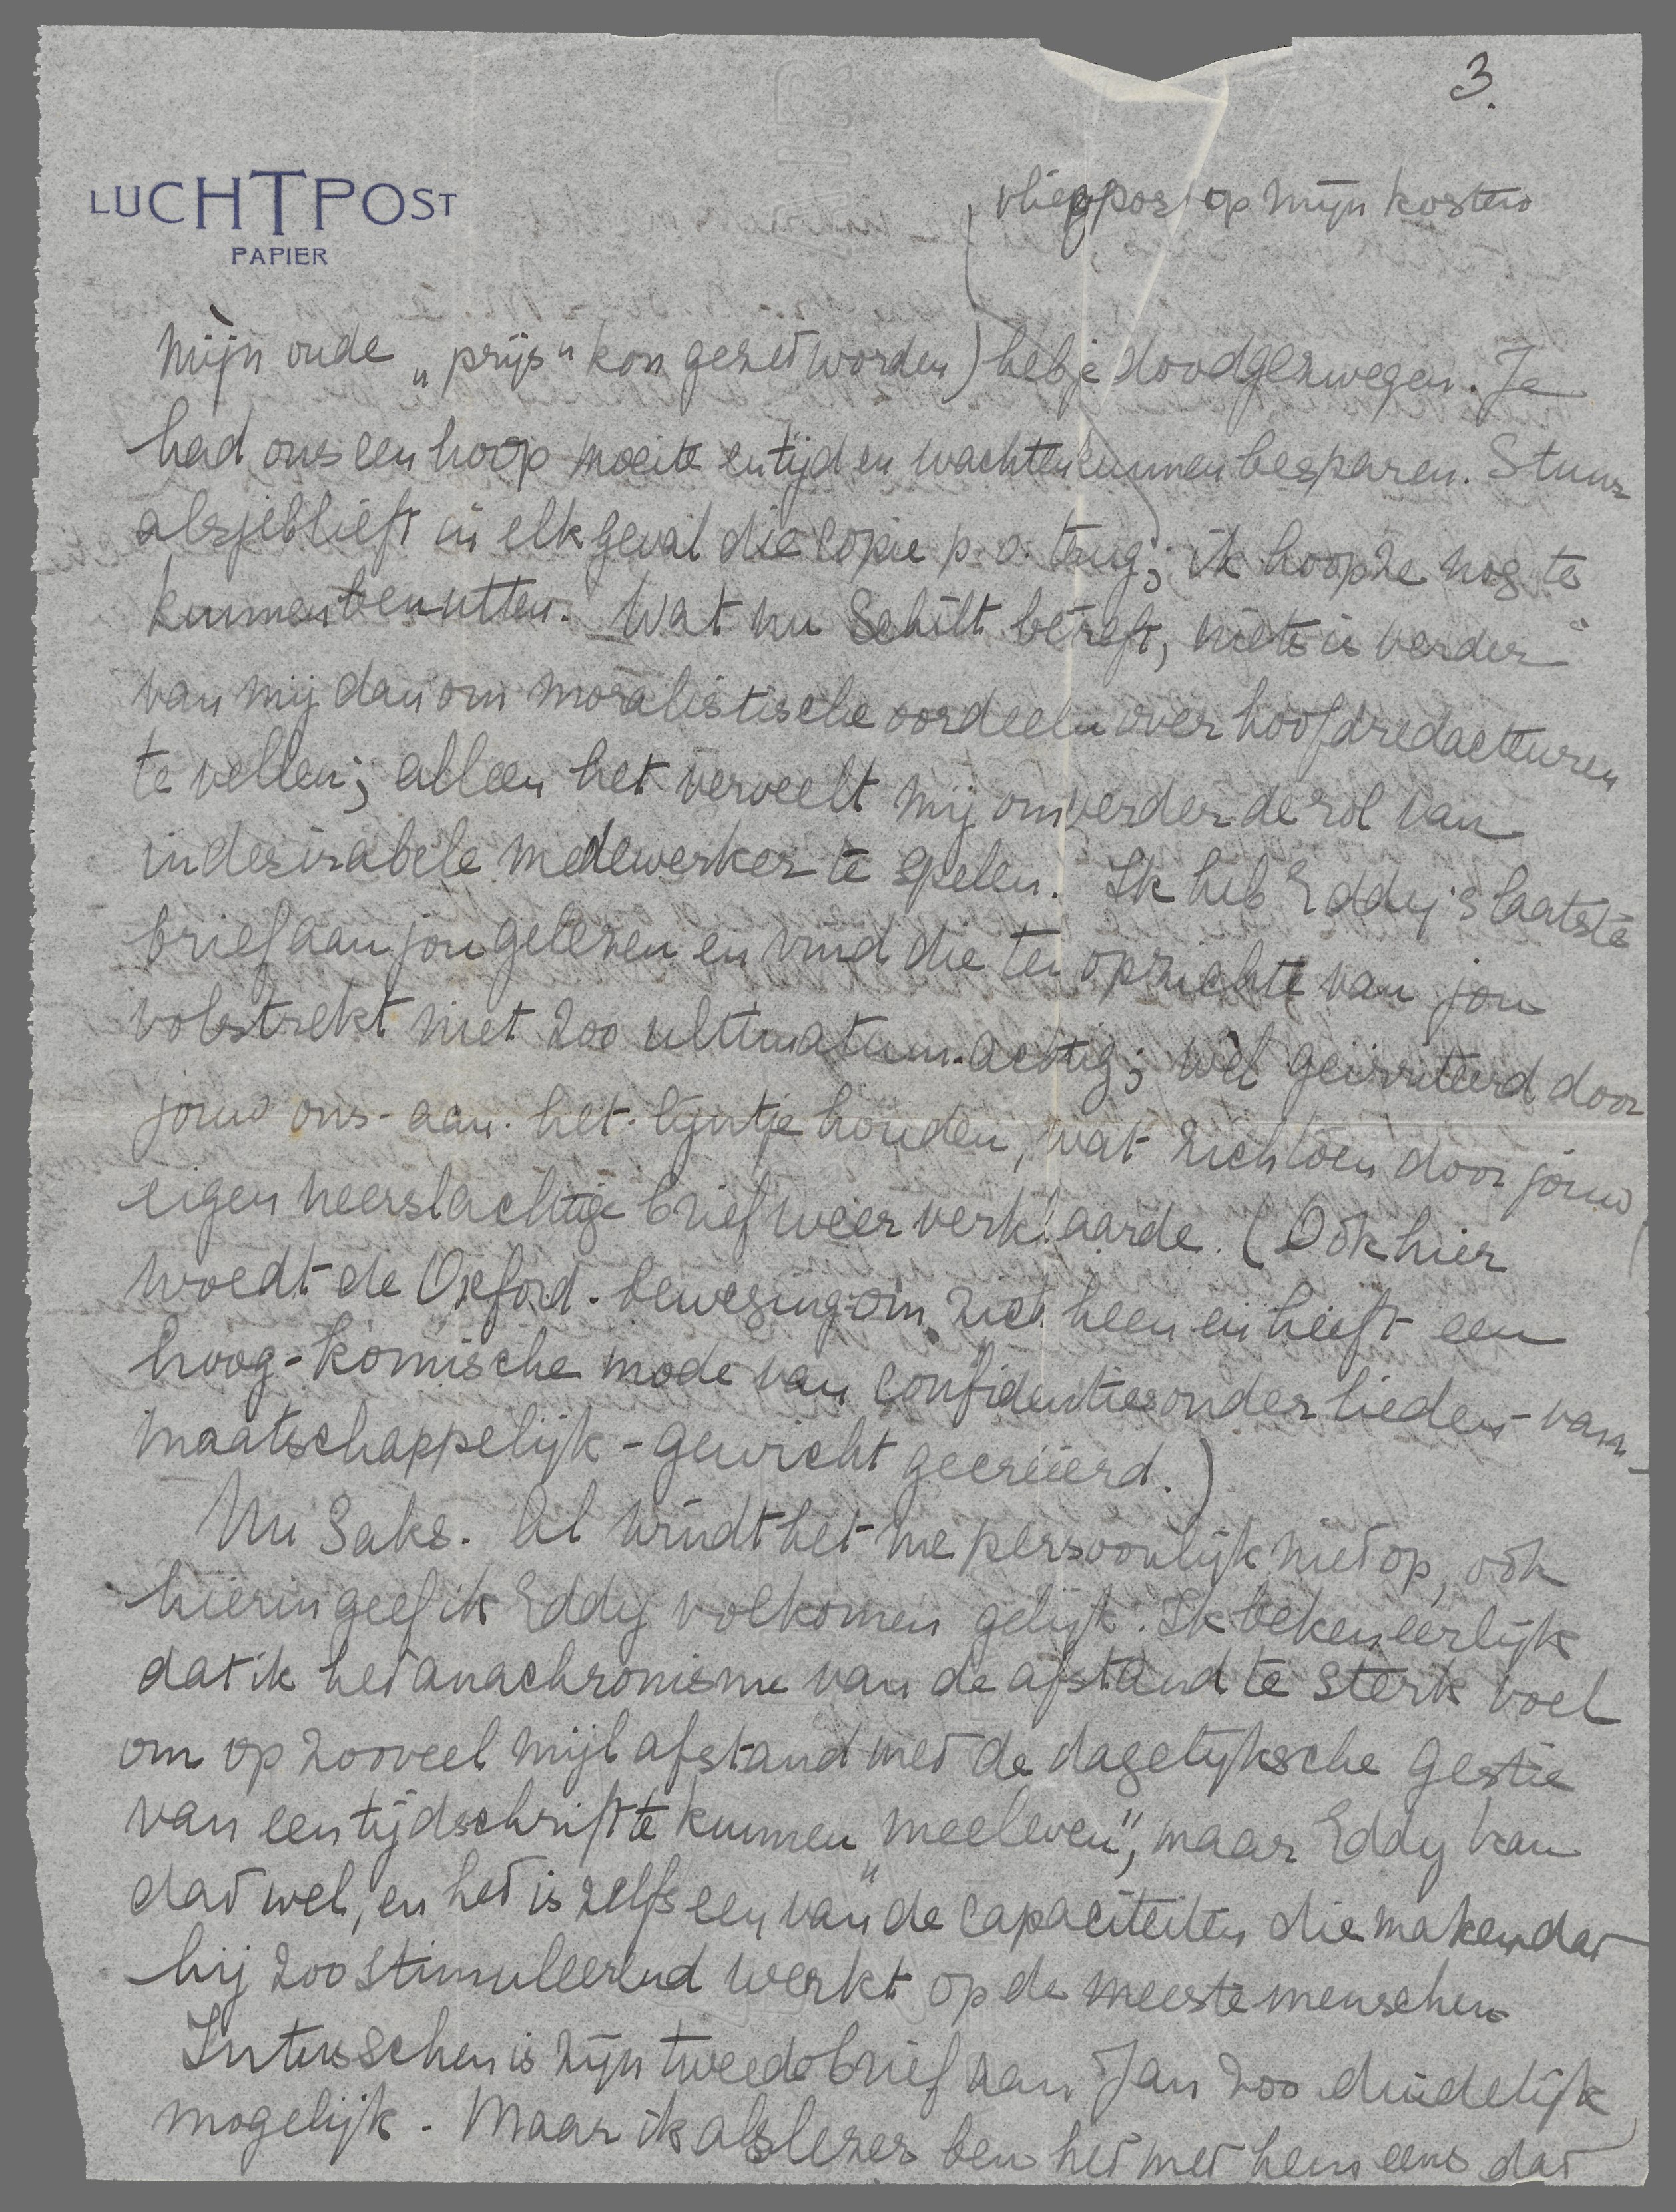 3.
LUCHTPOST
PAPIER
vliegpost op mijn kosten
mijn oude „prijs" kon gezet worden) heb je doodgezwegen. Je
had ons een hoop moeite en tijd en wachten kunnen besparen. Stuur
alsjeblieft in elk geval die copie p.o. terug; ik hoop ze nog te
kunnen benutten. Wat nu Schilt betreft, niets is verder
van mij dan om moralistische oordeelen over hoofdredacteuren
te vellen; alleen het verveelt mij om verder de rol van
indesirabele medewerker te spelen. Ik heb Eddy's laatste
brief aan jou gelezen en vind die ten opzichte van jou
volstrekt niet zoo ultimatum-achtig; wèl geïrriteerd door
jouw ons-aan-het-lijntje houden, wat zich toen door jouw
eigen neerslachtige brief weer verklaarde. (Ook hier
woedt de Oxford-beweging om zich heen en heeft een
hoog-komische mode van confidenties onder lieden-van-
maatschappelijk-gewicht gecreëerd.)
Nu Saks. Al windt het me persoonlijk niet op, ook
hierin geef ik Eddy volkomen gelijk. Ik beken eerlijk
dat ik het anachronisme van de afstand te sterk voel
om op zooveel mijl afstand met de dagelijksche gestie
van een tijdschrift te kunnen „meeleven", maar Eddy kan
dat wel, en het is zelfs een van de capaciteiten die maken dat
hij zoo stimuleerend werkt op de meeste menschen.
Intusschen is zijn tweede brief aan Jan zoo duidelijk
mogelijk. Maar ik als lezer ben het met hem eens dat